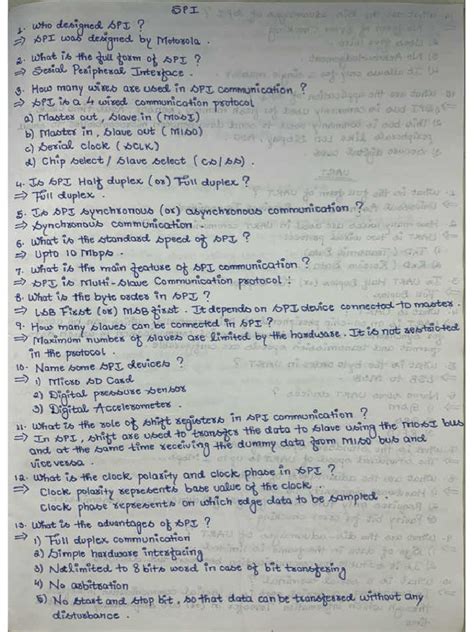 SPI
1. Who designed SPI ?
⇒ SPI was designed by Motorola.
2. What is the full form of SPI ?
⇒ Serial Peripheral Interface.
3. How many wires are used in SPI communication ?
⇒ SPI is a 4 wired communication protocol
a) Master out, Slave in (MOSI)
b) Master in, Slave out (MISO)
c) Serial clock (SCLK)
d) Chip select / Slave select (CS/SS).
4. Is SPI Half duplex (or) Full duplex ?
⇒ Full duplex.
5. Is SPI synchronous (or) asynchronous communication ?
⇒ Synchronous communication.
6. What is the standard speed of SPI ?
⇒ Upto 10 Mbps.
7. What is the main feature of SPI communication ?
⇒ SPI is Multi-slave Communication protocol.
8. What is the byte order in SPI ?
⇒ LSB First (or) MSB first. It depends on SPI device connected to master.
9. How many slaves can be connected in SPI ?
⇒ Maximum number of slaves are limited by the hardware. It is not restricted
in the protocol.
10. Name some SPI devices ?
⇒ 1) Micro SD Card
2) Digital pressure sensor
3) Digital Accelerometer.
11. What is the role of shift registers in SPI communication ?
⇒ In SPI, shift are used to transfer the data to slave using the MOSI bus
and at the same time receiving the dummy data from MISO bus and
vice versa.
12. What is the clock polarity and clock phase in SPI ?
⇒ Clock polarity represents base value of the clock.
Clock phase represents on which edge data to be sampled.
13. What is the advantages of SPI ?
⇒ 1) Full duplex communication
2) Simple hardware interfacing
3) Not limited to 8 bits word in case of bit transfering
4) No arbitration
5) No start and stop bit, so that data can be transferred without any
disturbance.